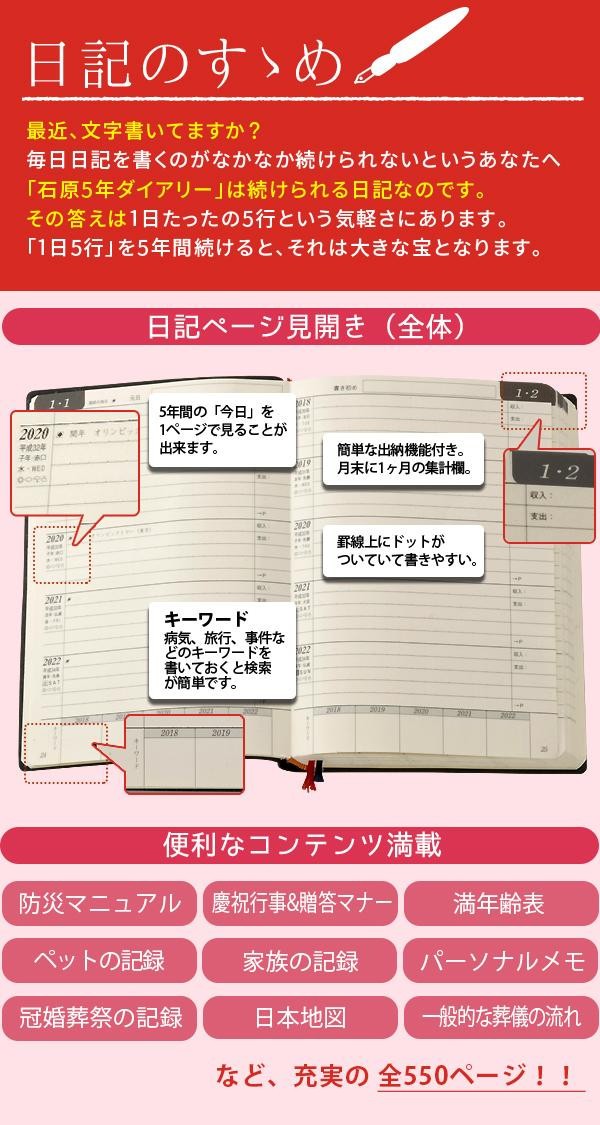 日記のすゝめ
最近、文字書いてますか？
毎日日記を書くのがなかなか続けられないというあなたへ
「石原5年ダイアリー」は続けられる日記なのです。
その答えは1日たったの5行という気軽さにあります。
「1日5行」を5年間続けると、それは大きな宝となります。
日記ページ見開き（全体）
1・1
元日
書き初め
1・2
収入：
支出：
5年間の「今日」を
1ページで見ることが
出来ます。
2020
平成32年
子年・赤口
水・WED
簡単な出納機能付き。
月末に1ヶ月の集計欄。
1・2
収入：
支出：
罫線上にドットが
ついていて書きやすい。
2018
2019
2020
2021
2022
2020
2021
2022
キーワード
病気、旅行、事件な
どのキーワードを
書いておくと検索
が簡単です。
2018 2019 2020 2021 2022
2018 2019 2020 2021 2022
キーワード
2018 2019
24
25
便利なコンテンツ満載
防災マニュアル
慶祝行事&贈答マナー
満年齢表
ペットの記録
家族の記録
パーソナルメモ
冠婚葬祭の記録
日本地図
一般的な葬儀の流れ
など、充実の 全550ページ！！